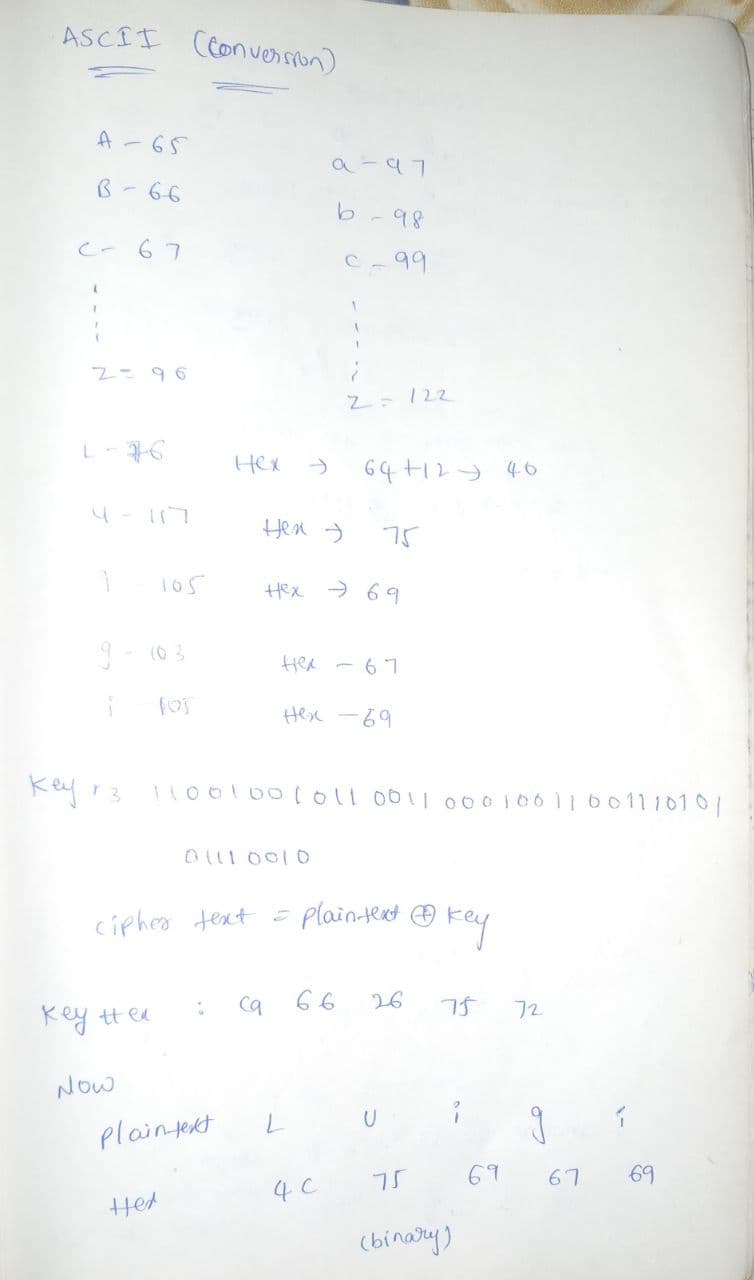 ASCII (Conversion)
A - 65
a - 97
B - 66
b - 98
C - 67
c - 99
Z = 96
z = 122
L - 76 Hex → 64+12 → 40
u - 117 Hex → 75
i 105 Hex → 69
g - 103 Hex - 67
i 105 Hex - 69
Key 13 1100100101100110001001100111010101110010
cipher text = plaintext ⊕ key
Key Hex : C9 66 26 75 72
Now
plaintext L U i g i
Hex 4C 75 69 67 69
(binary)